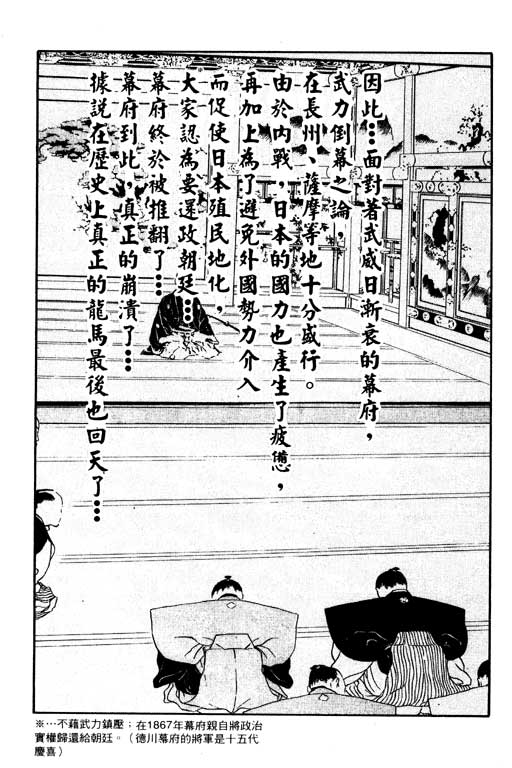 因此…面對著武威日漸衰的幕府，
武力倒幕之論，
在長州、薩摩等地十分盛行。
由於內戰，日本的國力也產生了疲憊，
再加上為了避免外國勢力介入
而促使日本殖民地化，
大家認為要還政朝廷…
幕府終於被推翻了…
幕府到此，真正的崩潰了…
據說在歷史上真正的龍馬最後也回天了…
※…不藉武力鎮壓；在1867年幕府親自將政治
實權歸還給朝廷。（德川幕府的將軍是十五代
慶喜）